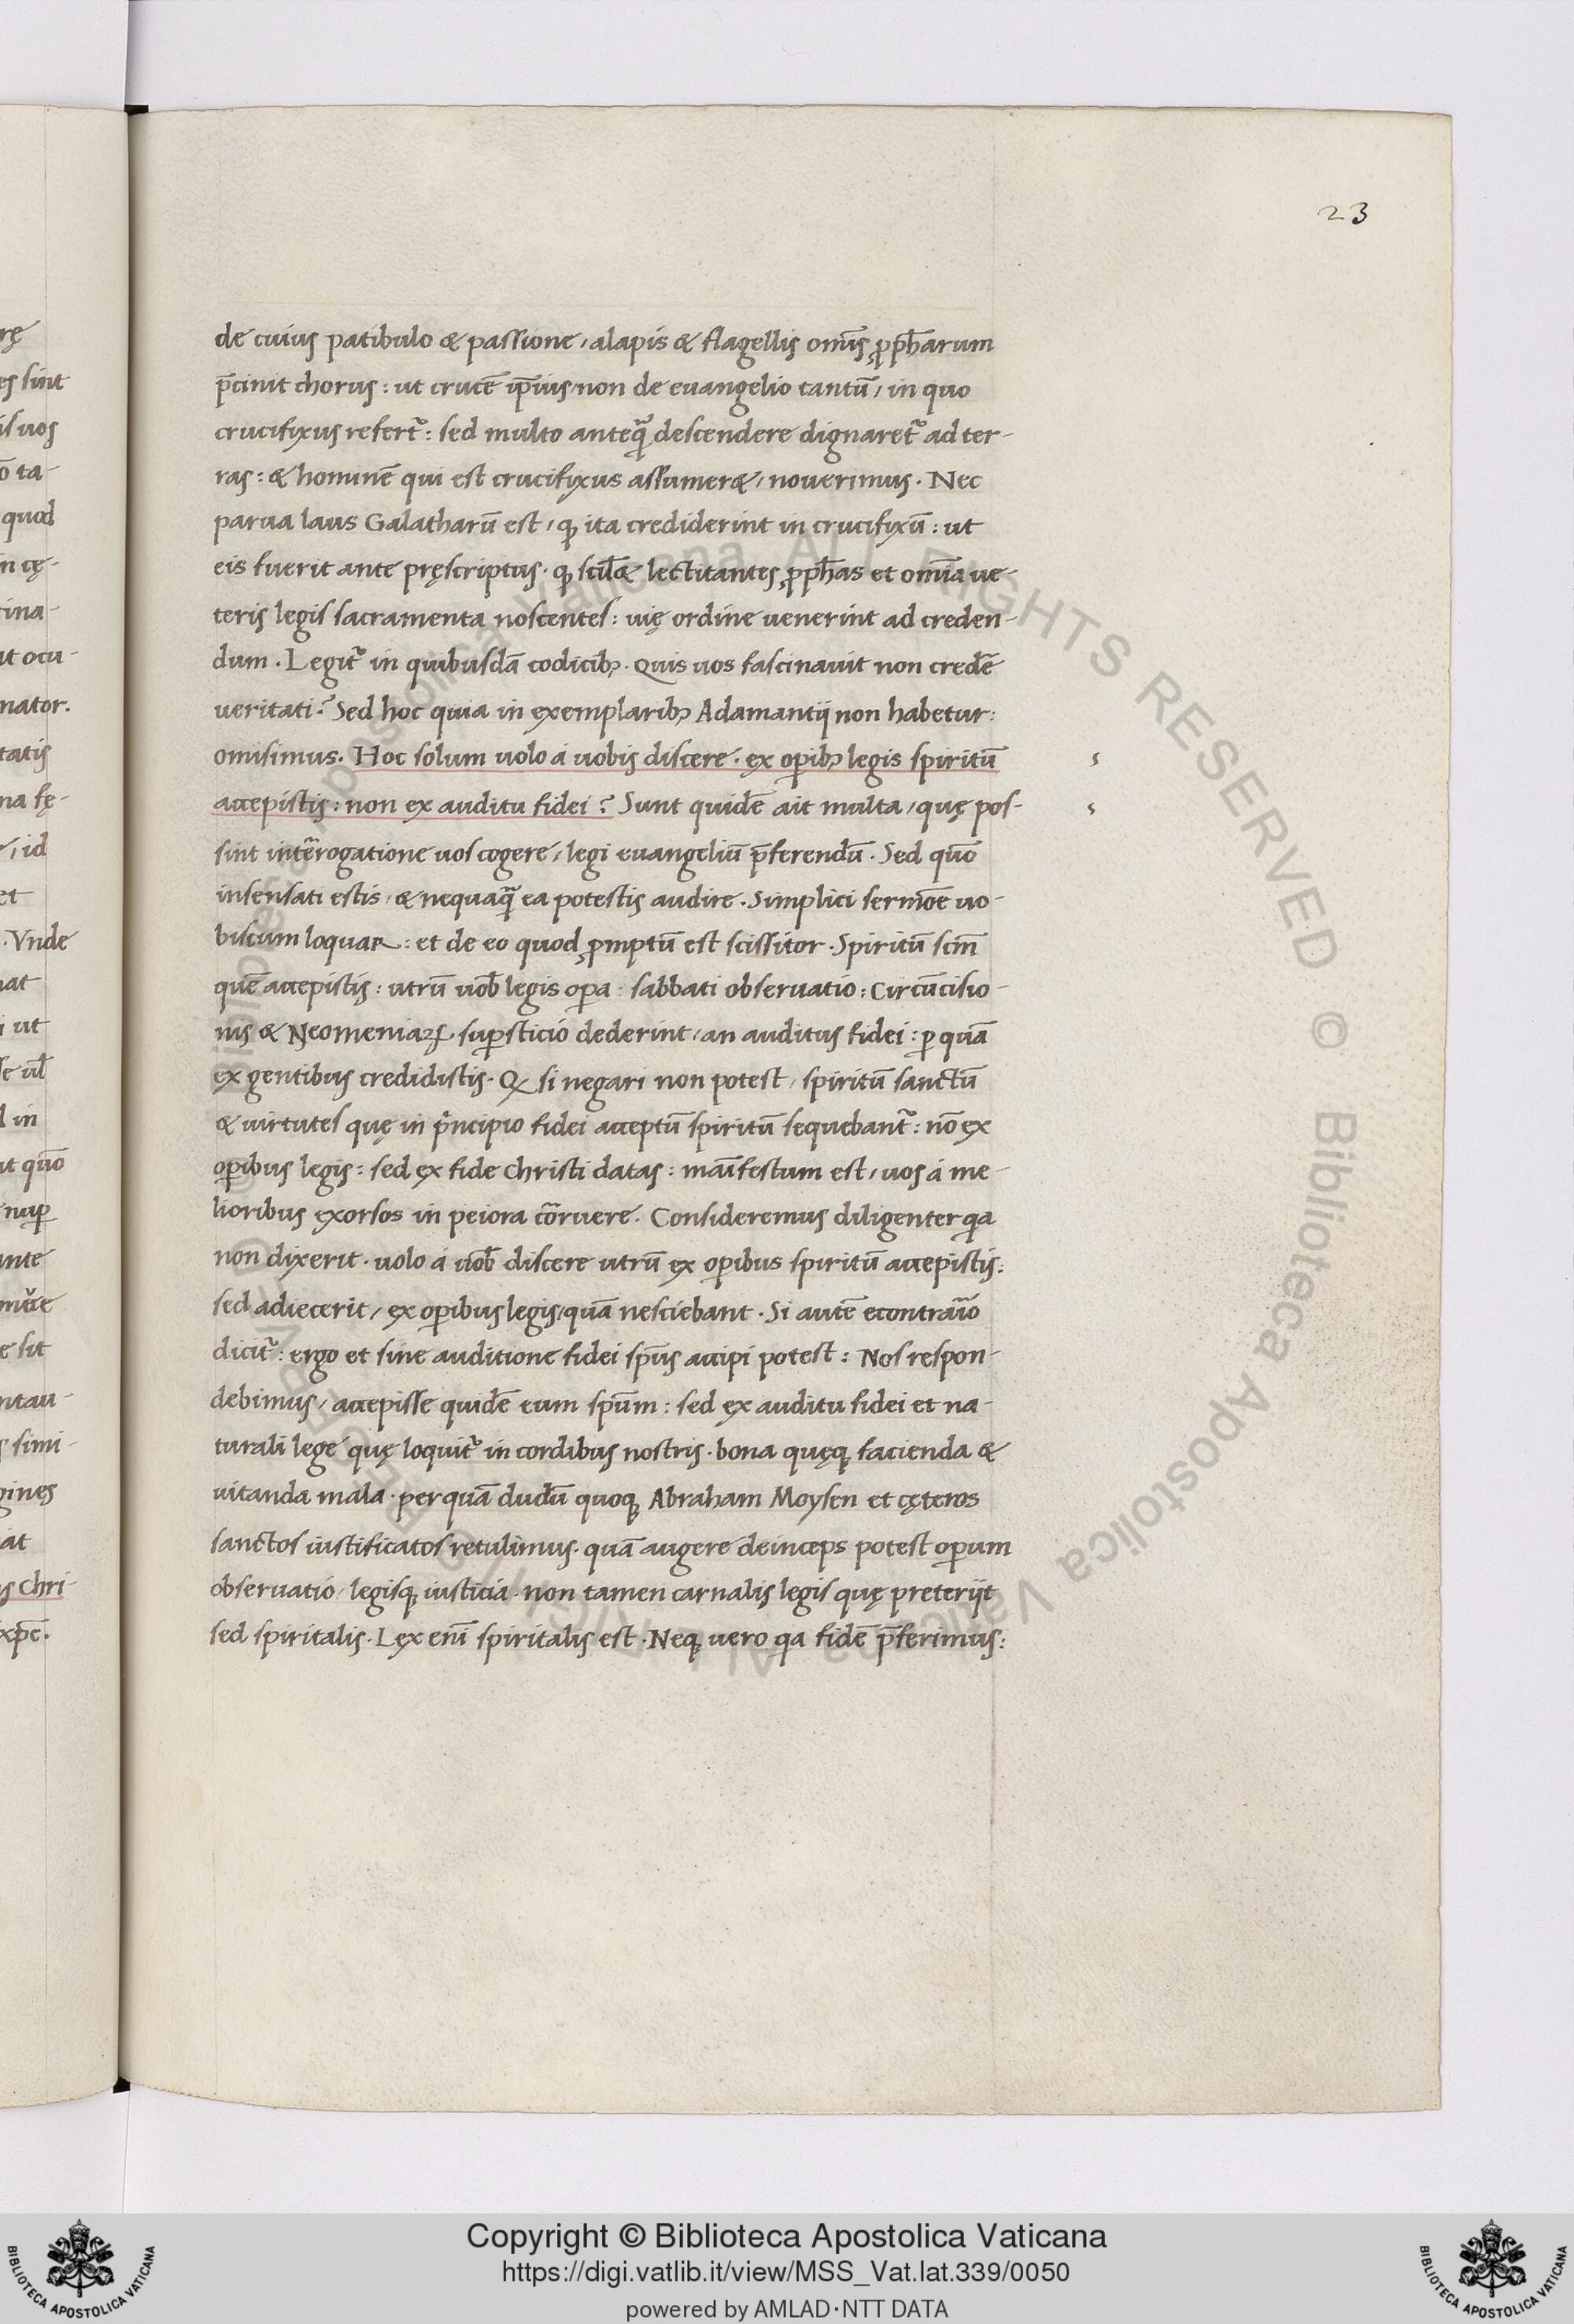 23
de cuius patibulo & passione, alapis & flagellis om̄s ꝓph̄arum
p̄cinit chorus: ut crucē ip̄ius, non de euangelio tantū, in quo
crucifixus refert᷑: sed multo anteq̃ descendere dignaret᷑ ad ter-
ras: & hominē qui est crucifixus assumer&, nouerimus. Nec
parua laus Galatharū est, ꝙ ita crediderint in crucifixū: ut
eis fuerit ante pręscriptus. ꝙ scil& lectitantes ꝓph̄as et om̄ia ue-
teris legis sacramenta noscentes: uię ordine uenerint ad creden-
dum. Legit᷑ in quibusdā codicibꝫ. Quis uos fascinauit non credē
ueritati? Sed hoc quia in exemplaribꝫ Adamantij non habetur:
omisimus. Hoc solum uolo á uobis discere. ex oꝑibꝫ legis spiritū
accepistis: non ex auditu fidei? Sunt quidē ait multa, quę pos-
sint int̄errogatione uos cogere, legi euangeliū p̄ferendū. Sed quō
insensati estis, & nequaq̃ ea potestis audire. Simplici sermōe uo-
biscum loquar: et de eo quod ꝓmptū est scissitor. Spiritū scm̄
quē accepistis: utrū uob̄ legis oꝑa: sabbati obseruatio: Circūcisio-
nis & Neomeniaꝝ suꝑstició dederint, an auditus fidei: ꝑ quā
ex gentibus credidistis. Ꝙ si negari non potest, spiritū sanctū
& uirtutes quę in pͥncipio fidei acceptū spiritū sequebant᷑: nō ex
oꝑibus legis: sed ex fide Christi datas: māifestum est, uos á me-
lioribus exorsos in peiora cōrruere. Consideremus diligenter qa
non dixerit. uolo á uob̄ discere utrū ex oꝑibus spiritū accepistis:
sed adiecerit, ex oꝑibus legis, quā nesciebant. Si autē econtrāio
dicit᷑: ergo et sine auditione fidei sp̄us accipi potest: Nos respon-
debimus, accepisse quidē eum sp̄um: sed ex auditu fidei et na-
turali lege quę loquit᷑ in cordibus nostris. bona quęqꝫ facienda &
uitanda mala. per quā dudū quoqꝫ Abraham Moysen et cęteros
sanctos iustificatos retulimus. quā augere deinceps potest oꝑum
obseruatio, legisqꝫ iusticia. non tamen carnalis legis quę preterijt
sed spiritalis. Lex eni̅ spiritalis est. Neqꝫ uero qa fidē p̄ferimus:
Copyright © Biblioteca Apostolica Vaticana
https://digi.vatlib.it/view/MSS_Vat.lat.339/0050
powered by AMLAD·NTT DATA